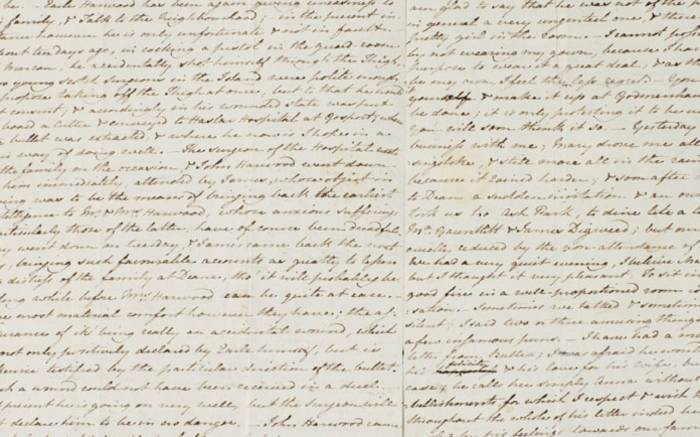 Earle Harwood has been again giving uneasiness to
family, & Talk to the Neighbourhood; - in the present in-
however he is only unfortunate & not in fault. -
ten days ago, in cocking a pistol in the guard room
he accidentally shot himself through the Thigh.
young Scotch Surgeons in the Island were polite enough
propose taking off the Thigh at once, but to that he wou'd
consent; & accordingly in his wounded state was put
board a Cutter & conveyed to Haslar Hospital at Gosport; where
bullet was extracted, & where he now is I hope in a
way of doing well. - The surgeon of the Hospital
the family on the occasion, & John Harwood went down
him immediately, attended by James, whose object in
was to be the means of bringing back the earliest
to Mr. & Mrs. Harwood, whose anxious sufferings
particularly those of the latter, have of course been dreadful.
went down on tuesday, & James came back the next
bringing such favourable accounts as greatly to lessen
distress of the family at Deane, tho' it will probably be
long while before Mrs. Harwood can be quite at ease. -
most material comfort however they have; the as-
surance of it's being really an accidental wound, which
not only positively declared by Earle himself, but is
testified by the particular direction of the bullet.
a wound could not have been received in a duel.
present he is going on very well, but the Surgeon will
declare him to be in no danger. - John Harwood came
glad to say that he was not of the
in general a very ungenteel one, & there
pretty girl in the room. - I cannot
by not wearing my gown, because I have
purpose to wear it a great deal, & as the
be my own, I feel the less regret. - You
& make it up at Godmersham
be done; it is only protesting it to be
you will soon think it so. - Yesterday
business with me; Mary drove me all
& back more all in the rain
because it rained harder; & soon after
to Deane a sudden invitation & an
took us to Ash Park, to dine tete a
Mr. Holder, Mr. Gauntlett & James Digweed; but our
cruelly reduced by the non attendance of
We had a very quiet evening, I beleive
but I thought it very pleasant. To sit in
good fire in a well-proportioned room is
sation. - Sometimes we talked & sometimes
silent; I said two or three amusing things
a few infamous puns. - I have had a
letter from Buller; I was afraid he would
his & his love for his wife, but
case; he calls her simply Anna without
embellishments, for which I respect & wish
throughout the whole of his letter indeed he
by his feelings towards our family